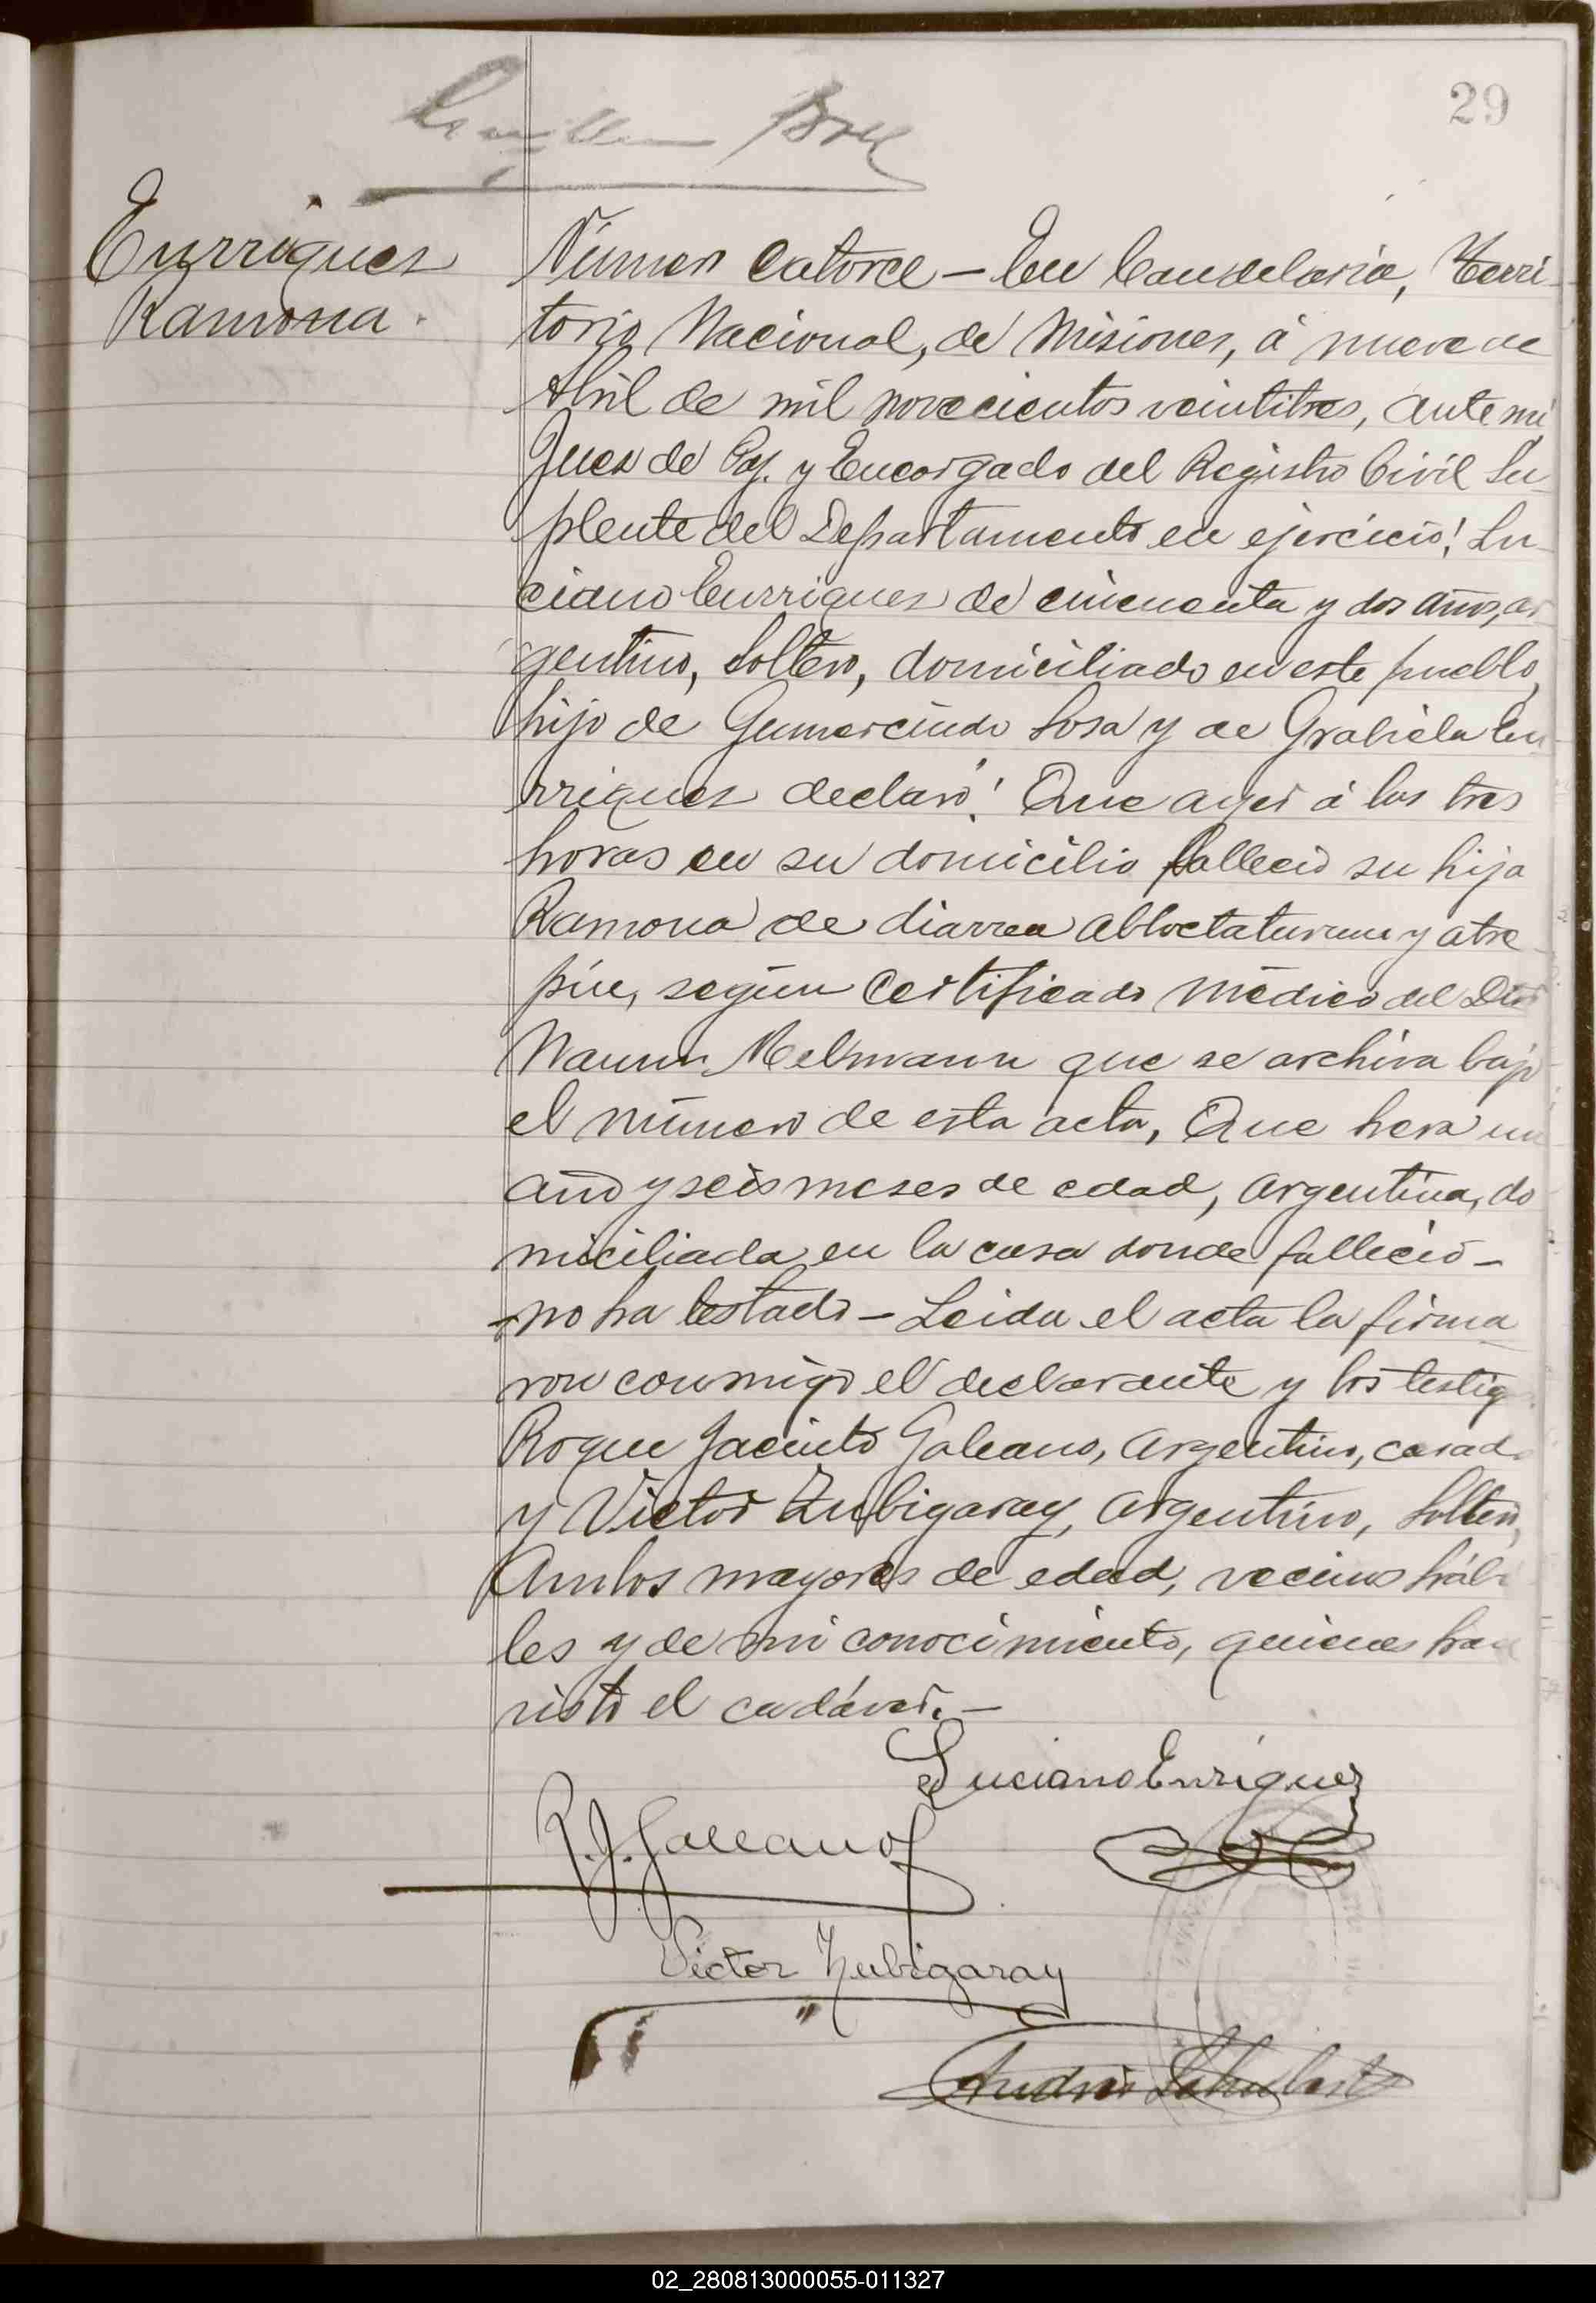 29
Enrriques
Ramona.
Número Catorce – En Candelaria, Terri-
torio Nacional, de Misiones, á nueve de
Abril de mil novecientos veintitres, ante mi
Juez de Paz y Encargado del Registro Civil Su-
plente del Departamento en ejercicio: Lu-
ciano Enrriques de cincuenta y dos años, ar-
gentino, soltero, domiciliado en este pueblo,
hijo de Gumercindo Sosa y de Grabiela En-
rriques declaró: Que ayer á las tres
horas en su domicilio falleció su hija
Ramona de diarrea ablactaturum y atre-
psie, según Certificado Médico del Dtor
Naum Melmann que se archiva bajo
el número de esta acta, Que hera un
año y seis meses de edad, argentina, do
miciliada en la casa donde falleció –
no ha testado – Leida el acta la firma
ron conmigo el declarante y los testig
Roque Jacinto Galeano, argentino, casado
y Victor Zubigaray, argentino, soltero,
Ambos mayores de edad, vecinos hábi
les y de mi conocimiento, quienes han
visto el cadáver. –
Luciano Enriquez
R. J. Galeano
Victor Zubigaray
Andrés
02_280813000055-011327